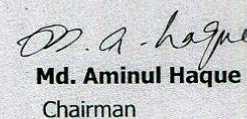 m. a. haque
Md. Aminul Haque
Chairman